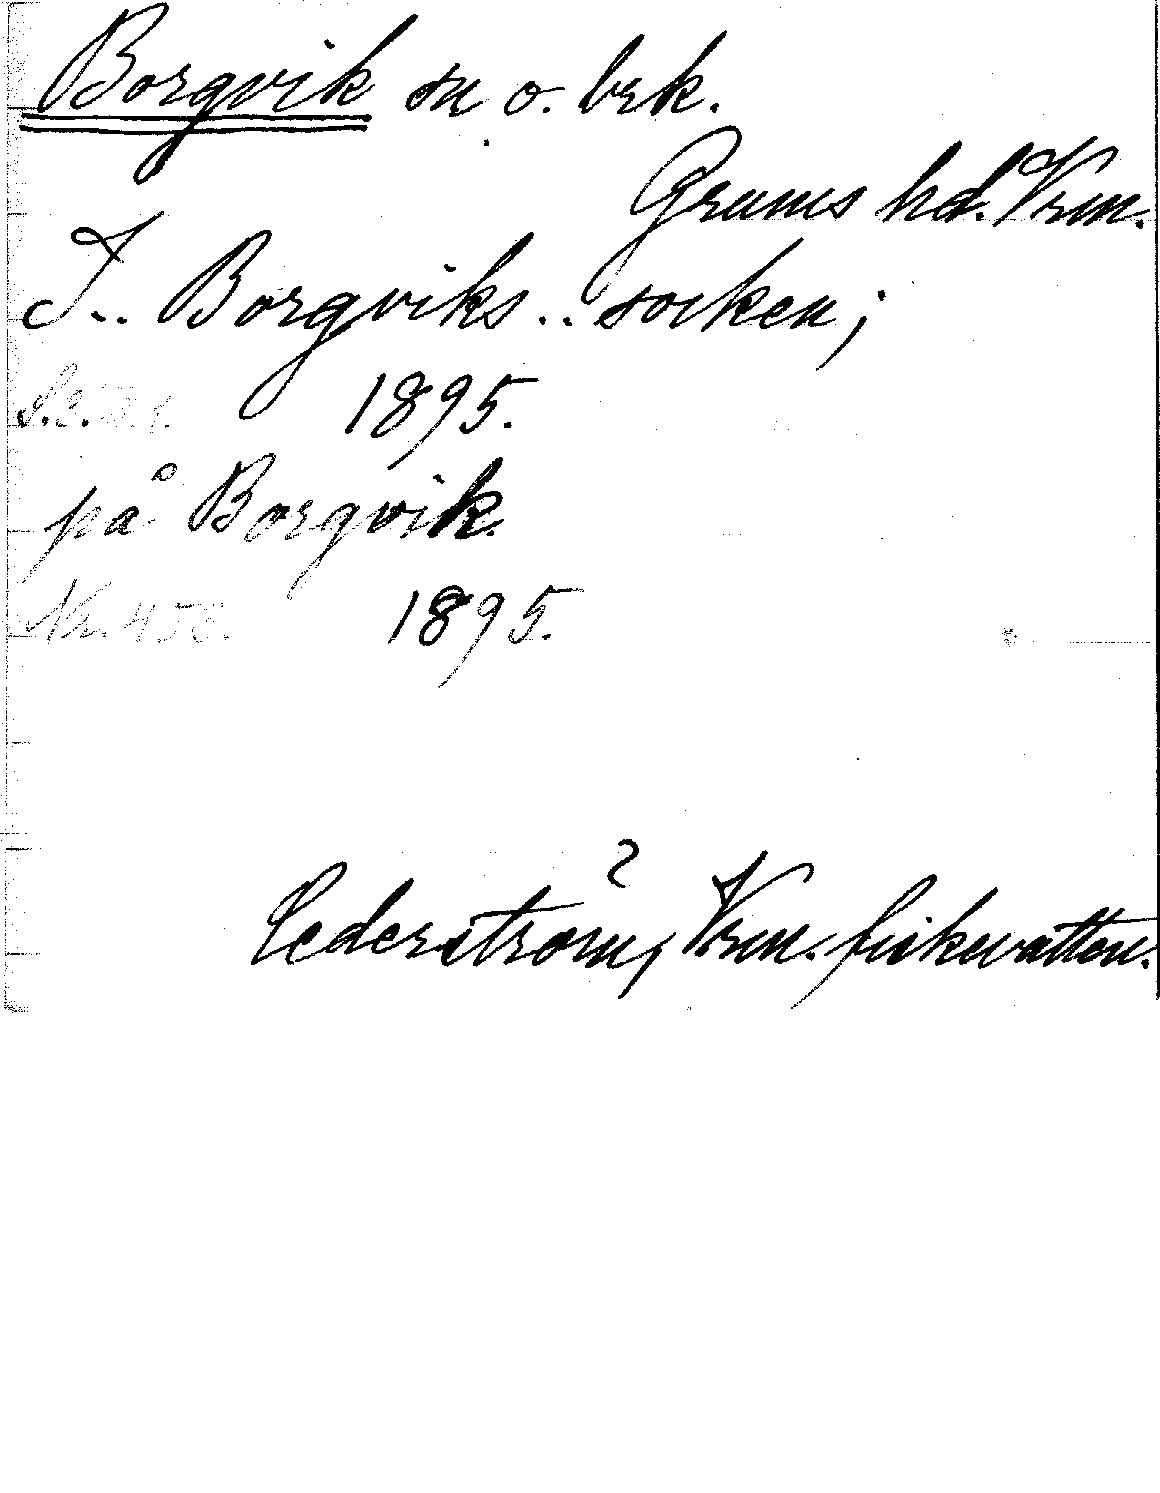 Borgvik sn o. brk.
Grums hd. Vrm.
I.. Borgviks .. socken;
1895.
på Borgvik.
Nr. 450. 1895.
Cederström, Vrm. fiskevatten.